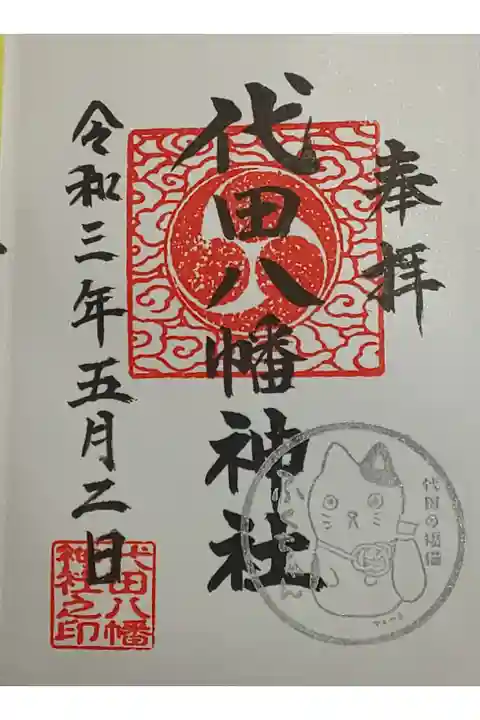 奉拝
代田八幡神社
令和三年五月二日
代田八幡
神社之印
代田の福猫